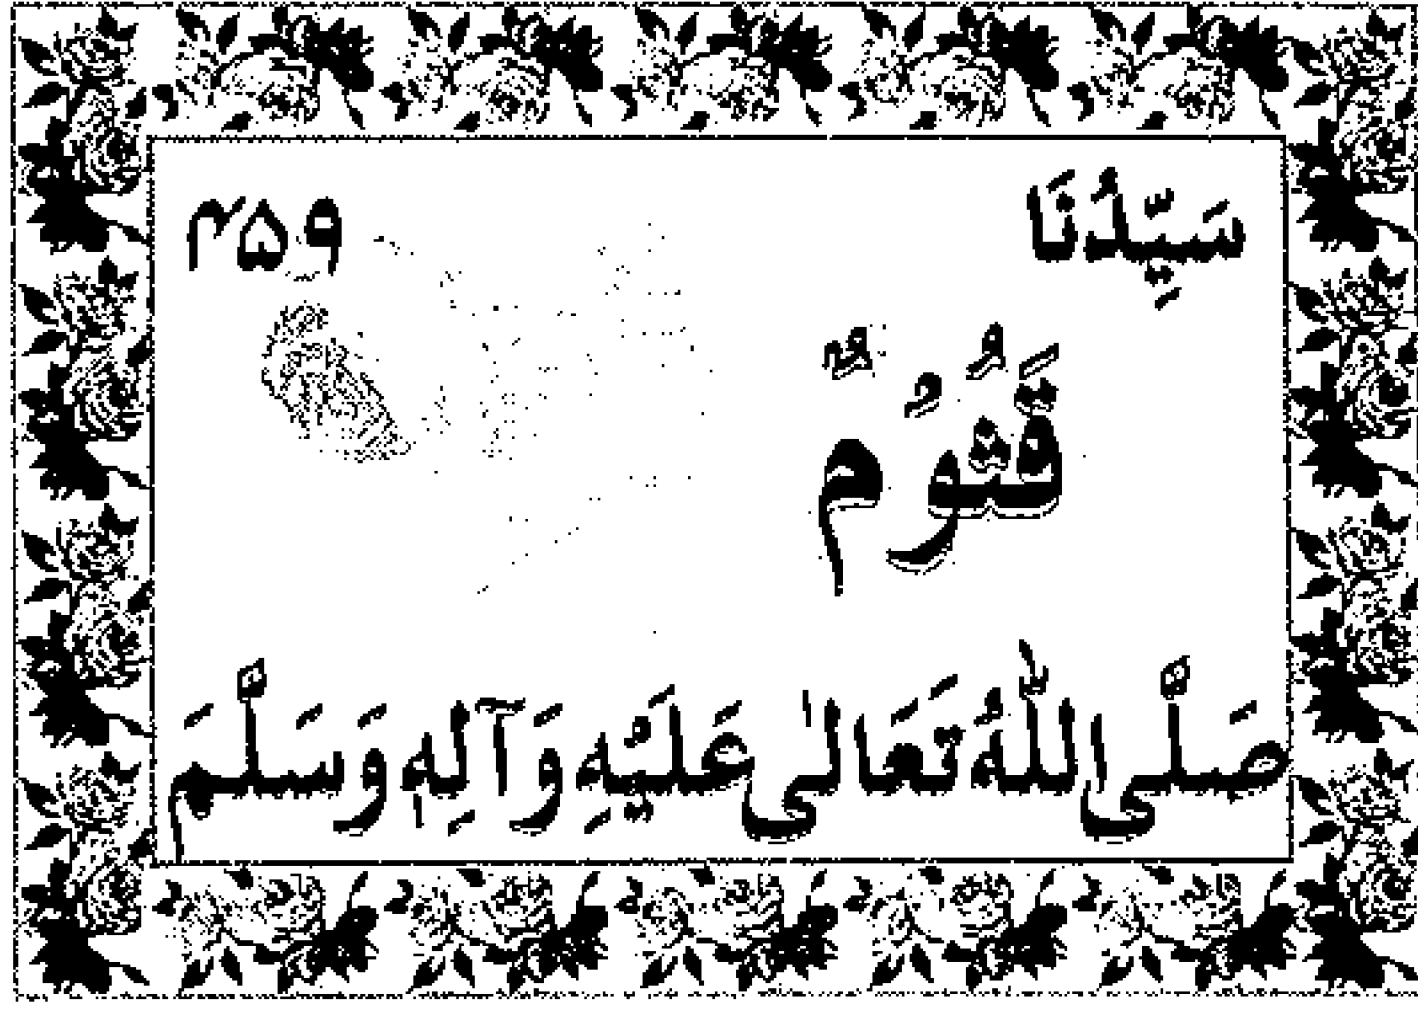 سَيِّدُنَا ۴۵۹
قَثُومٌ
صَلَّى اللّٰهُ تَعَالٰى عَلَيْهِ وَآلِهٖ وَسَلَّمَ